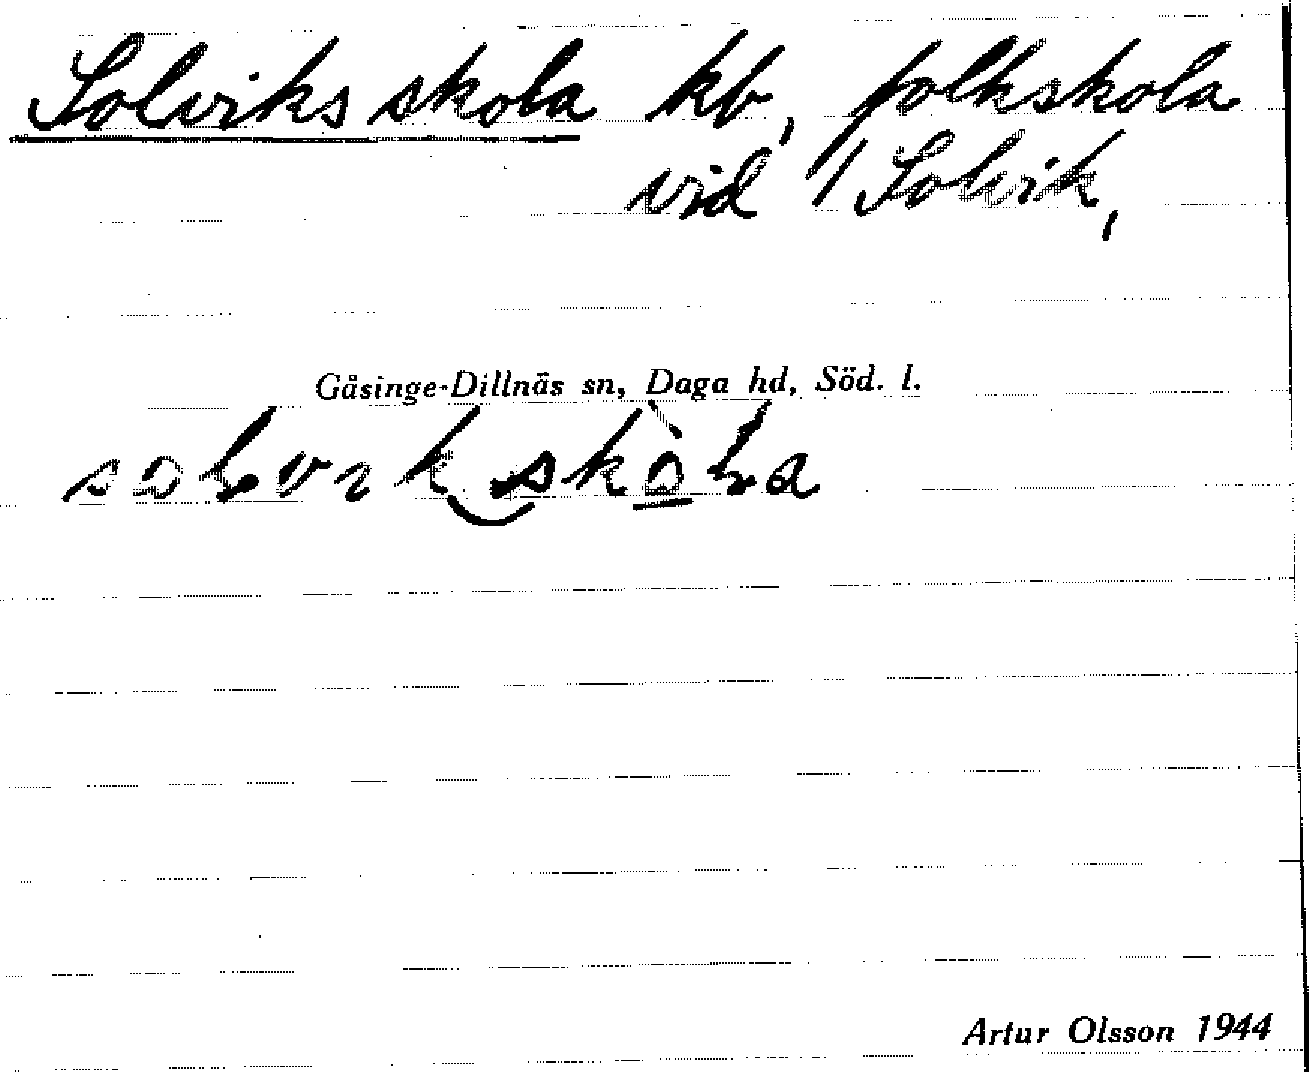 Solviks skola kb, folkskola
vid 1 Solvik,
Gåsinge-Dillnäs sn, Daga hd, Söd. l.
Artur Olsson 1944